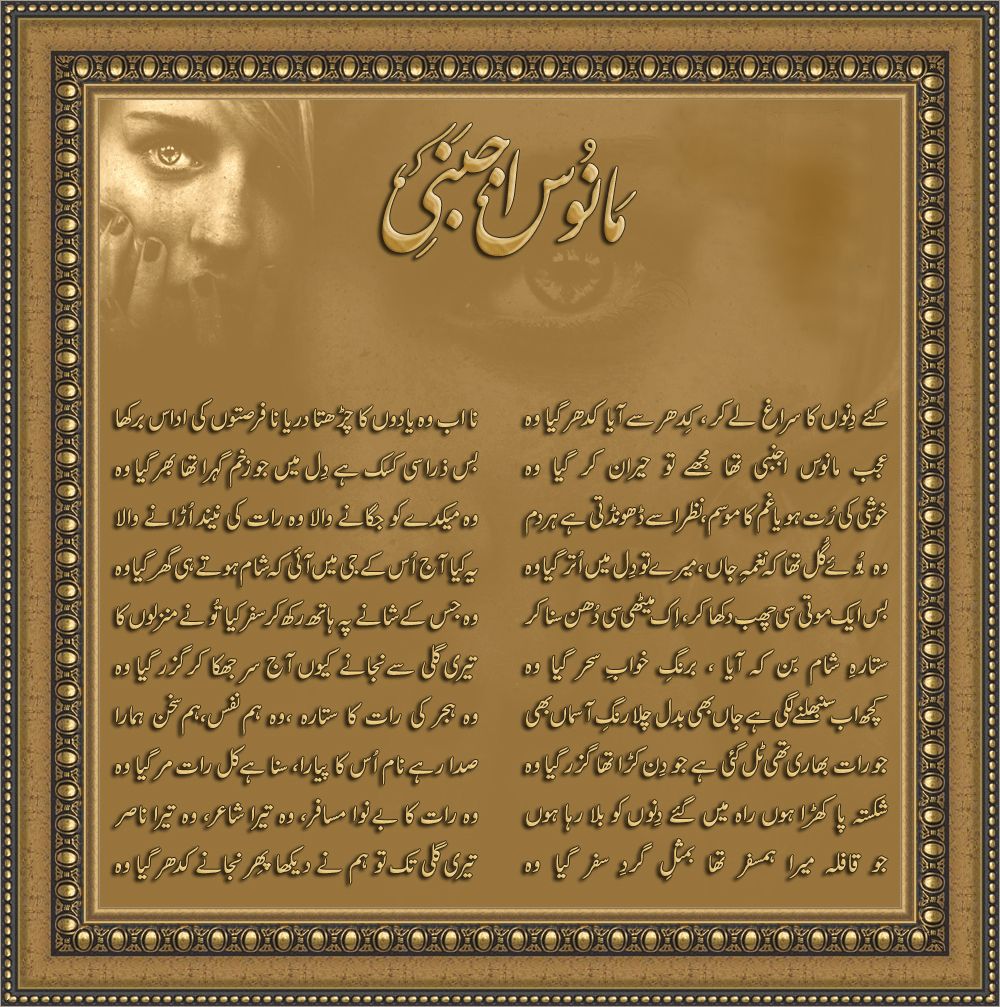 مانُوس اجنبی
گئے دِنوں کا سراغ لے کر، کِدھر سے آیا کدھر گیا وہ
عجب مانوس اجنبی تھا مجھے تو حیران کر گیا وہ
خوشی کی رُت ہو یا غم کا موسم، نظر اسے ڈھونڈتی ہے ہر دم
وہ بُوئے گُل تھا کہ نغمہِ جاں، میرے تو دِل میں اُتر گیا وہ
بس ایک موتی سی چھب دکھا کر، اِک میٹھی سی دُھن سنا کر
ستارہِ شام بن کہ آیا ، برنگِ خوابِ سحر گیا وہ
کچھ اب سنبھلنے لگی ہے جاں بھی بدل چلا رنگِ آسماں بھی
جو رات بھاری تھی ٹل گئی ہے جو دِن کڑا تھا گزر گیا وہ
شکستہ پا کھڑا ہوں راہ میں گئے دِنوں کو بلا رہا ہوں
جو قافلہ میرا ہمسفر تھا بمثلِ گردِ سفر گیا وہ
نا اب وہ یادوں کا چڑھتا دریا نا فرصتوں کی اداس برکھا
بس ذرا سی کسک ہے دِل میں جو زخم گہرا تھا بھر گیا وہ
وہ میکدے کو جگانے والا وہ رات کی نیند اُڑانے والا
یہ کیا آج اُس کے جی میں آئی کہ شام ہوتے ہی گھر گیا وہ
وہ جس کے شانے پہ ہاتھ رکھ کر سفر کیا تُو نے منزلوں کا
تیری گلی سے نجانے کیوں آج سر جھکا کر گزر گیا وہ
وہ ہجر کی رات کا ستارہ ،وہ ہم نفس،ہم سخن ہمارا
صدا رہے نام اُس کا پیارا، سنا ہے کل رات مر گیا وہ
وہ رات کا بے نوا مسافر، وہ تیرا شاعر، وہ تیرا ناصر
تیری گلی تک تو ہم نے دیکھا پھر نجانے کدھر گیا وہ